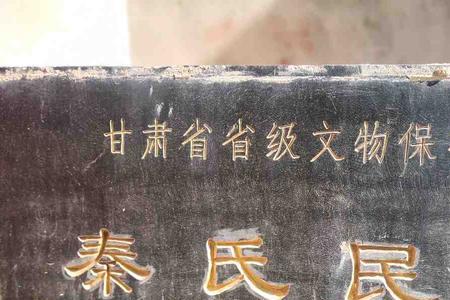 甘肃省省级文物保
秦氏民